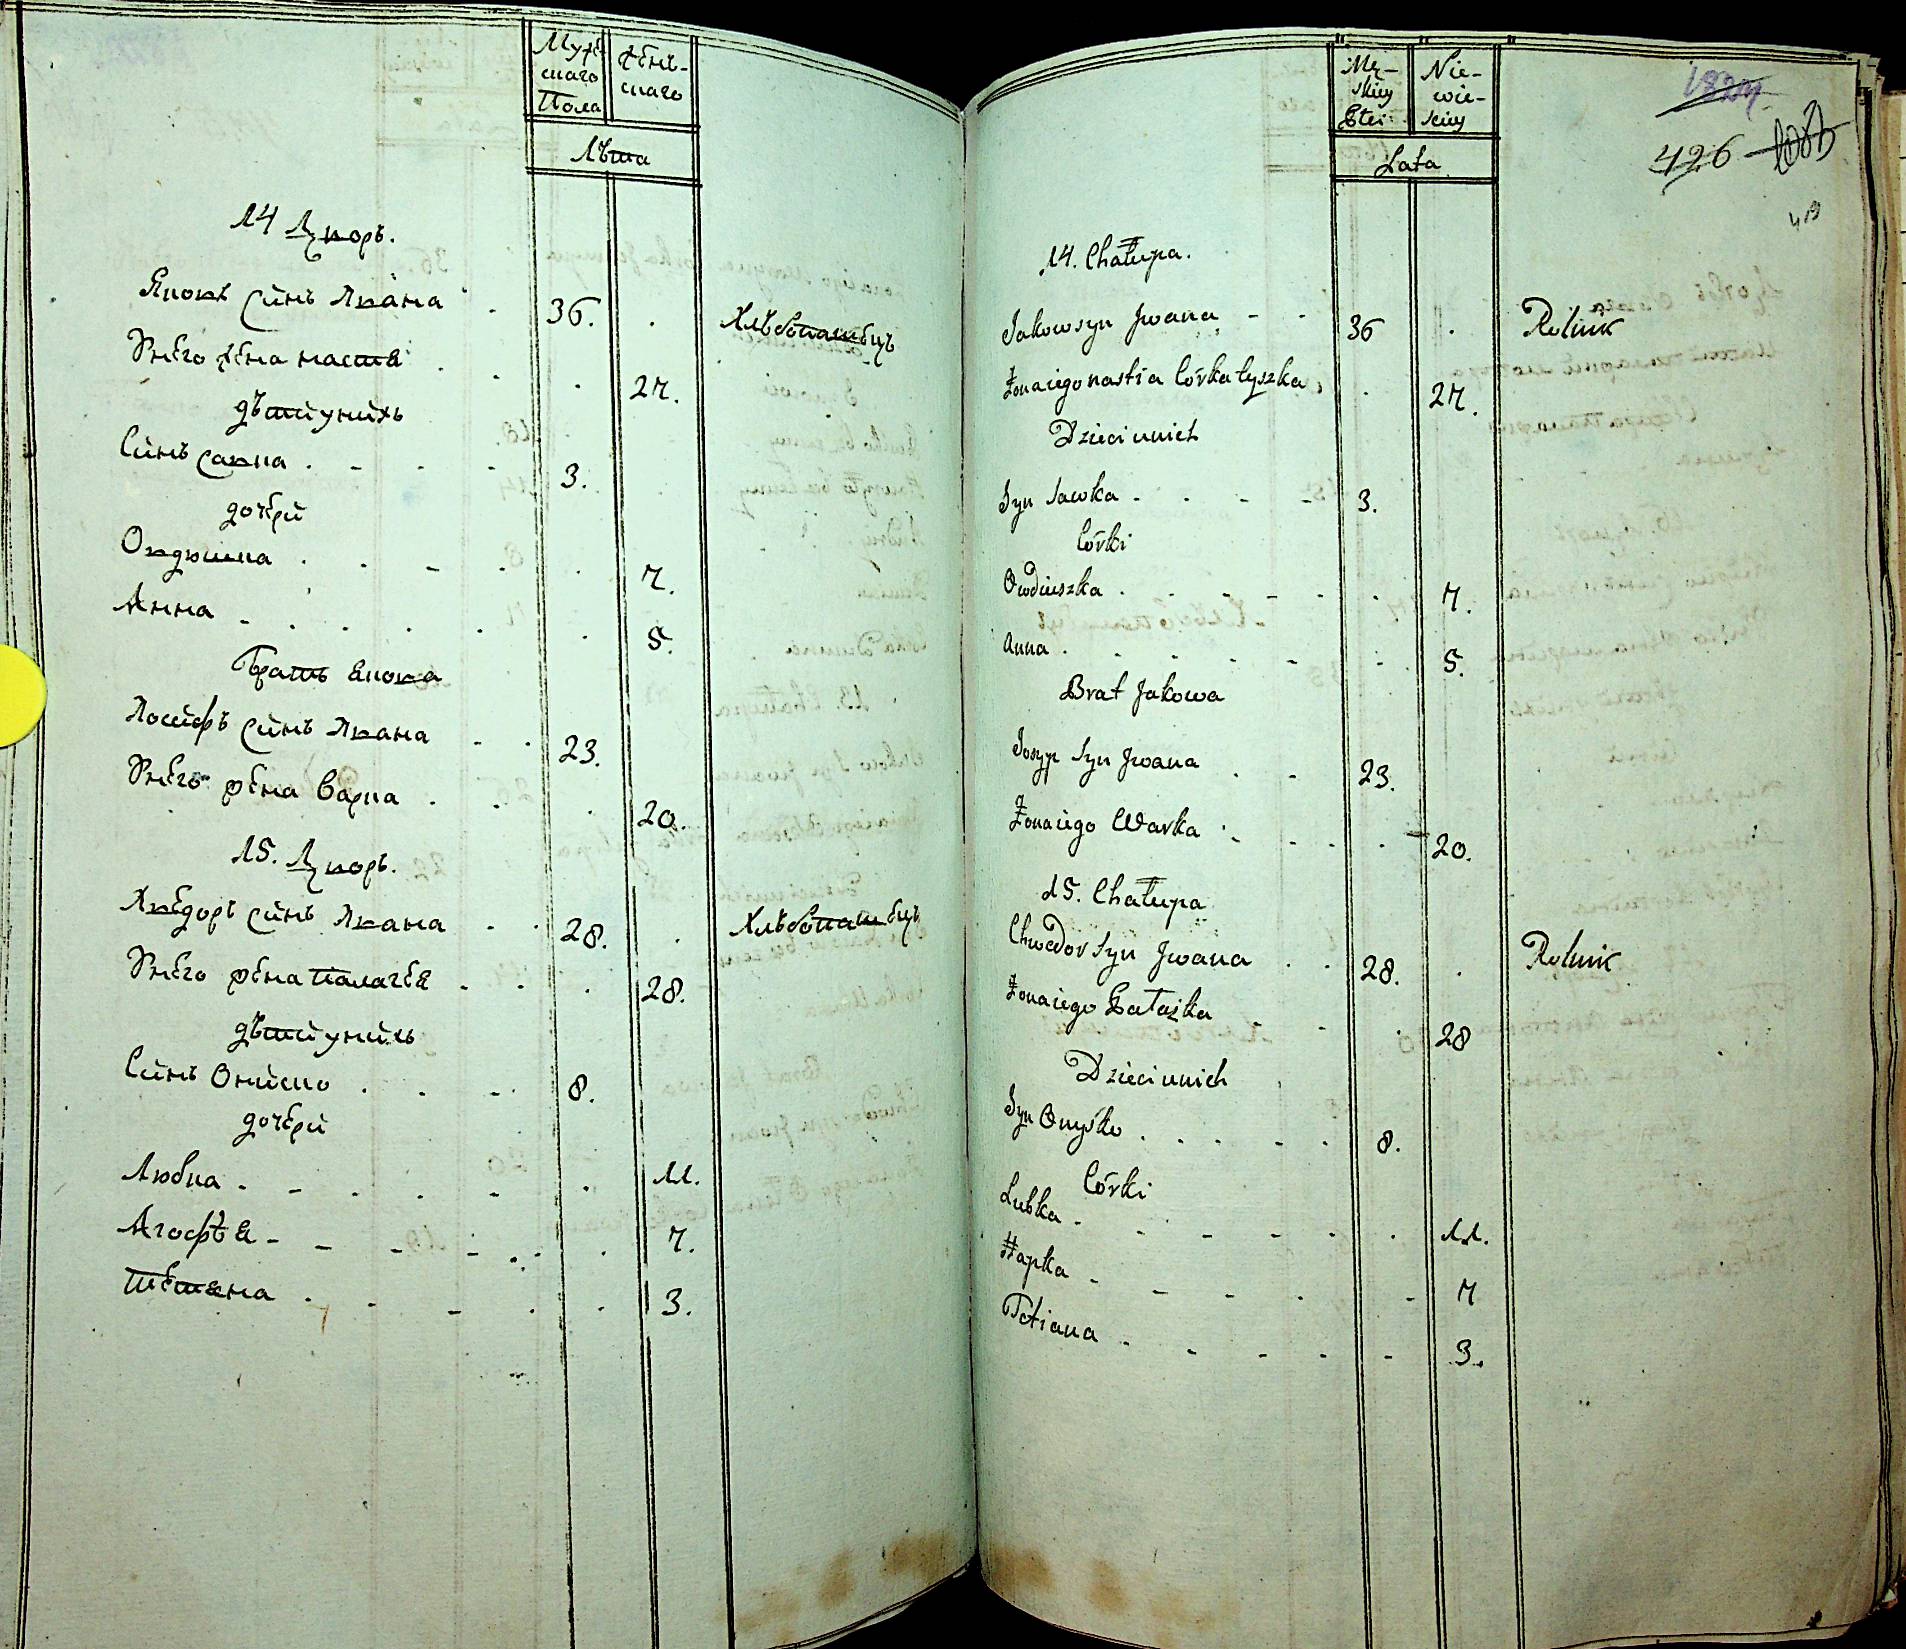 Мужескаго Пола
Женскаго
Лѣта
14 Двор.
Яковъ синъ Ивана . 36. .
Хлѣбопашецъ
У него жена настя . . . 27.
дѣти у нихъ
Синъ Савка . - . - 3.
дочери
Овдюшка . . - . . 7.
Анна - . . . . . 5.
Братъ Якова
Иосифъ синъ Ивана - . 23.
У него жена Варка . . . 20.
15. Двор.
Хведоръ синъ Ивана - . 28. .
Хлѣбопашецъ
У него жена Палагея . . . 28.
дѣти у нихъ
Синъ Ониско . . - 8.
дочери
Любка . - . . - . 11.
Агофѣя - - - - . . 7.
Тетяна . . - . . 3.
Męskiey Płci
Niewieskiey
Lata
426
419
14. Chałupa.
Jakow syn Jwana - - 36 .
Rolnik
Żona iego nastia Córka Łyszka . . 27.
Dzieci u nich
Syn Sawka - . - - 3.
Córki
Owdiuszka . . - - . . 7.
Anna . . . - - . 5.
Brat Jakowa
Josyp Syn Jwana . - 23.
Żona iego Warka . - . - . 20.
15. Chałupa
Chwedor Syn Jwana . . 28. .
Rolnik
Żona iego Pałażka - - . 28
Dzieci u nich
Syn Onyśko . . . - . 8.
Córki
Lubka - . - - . . 11.
Hapka - - - . - 7
Tetiana - - - - - 3.